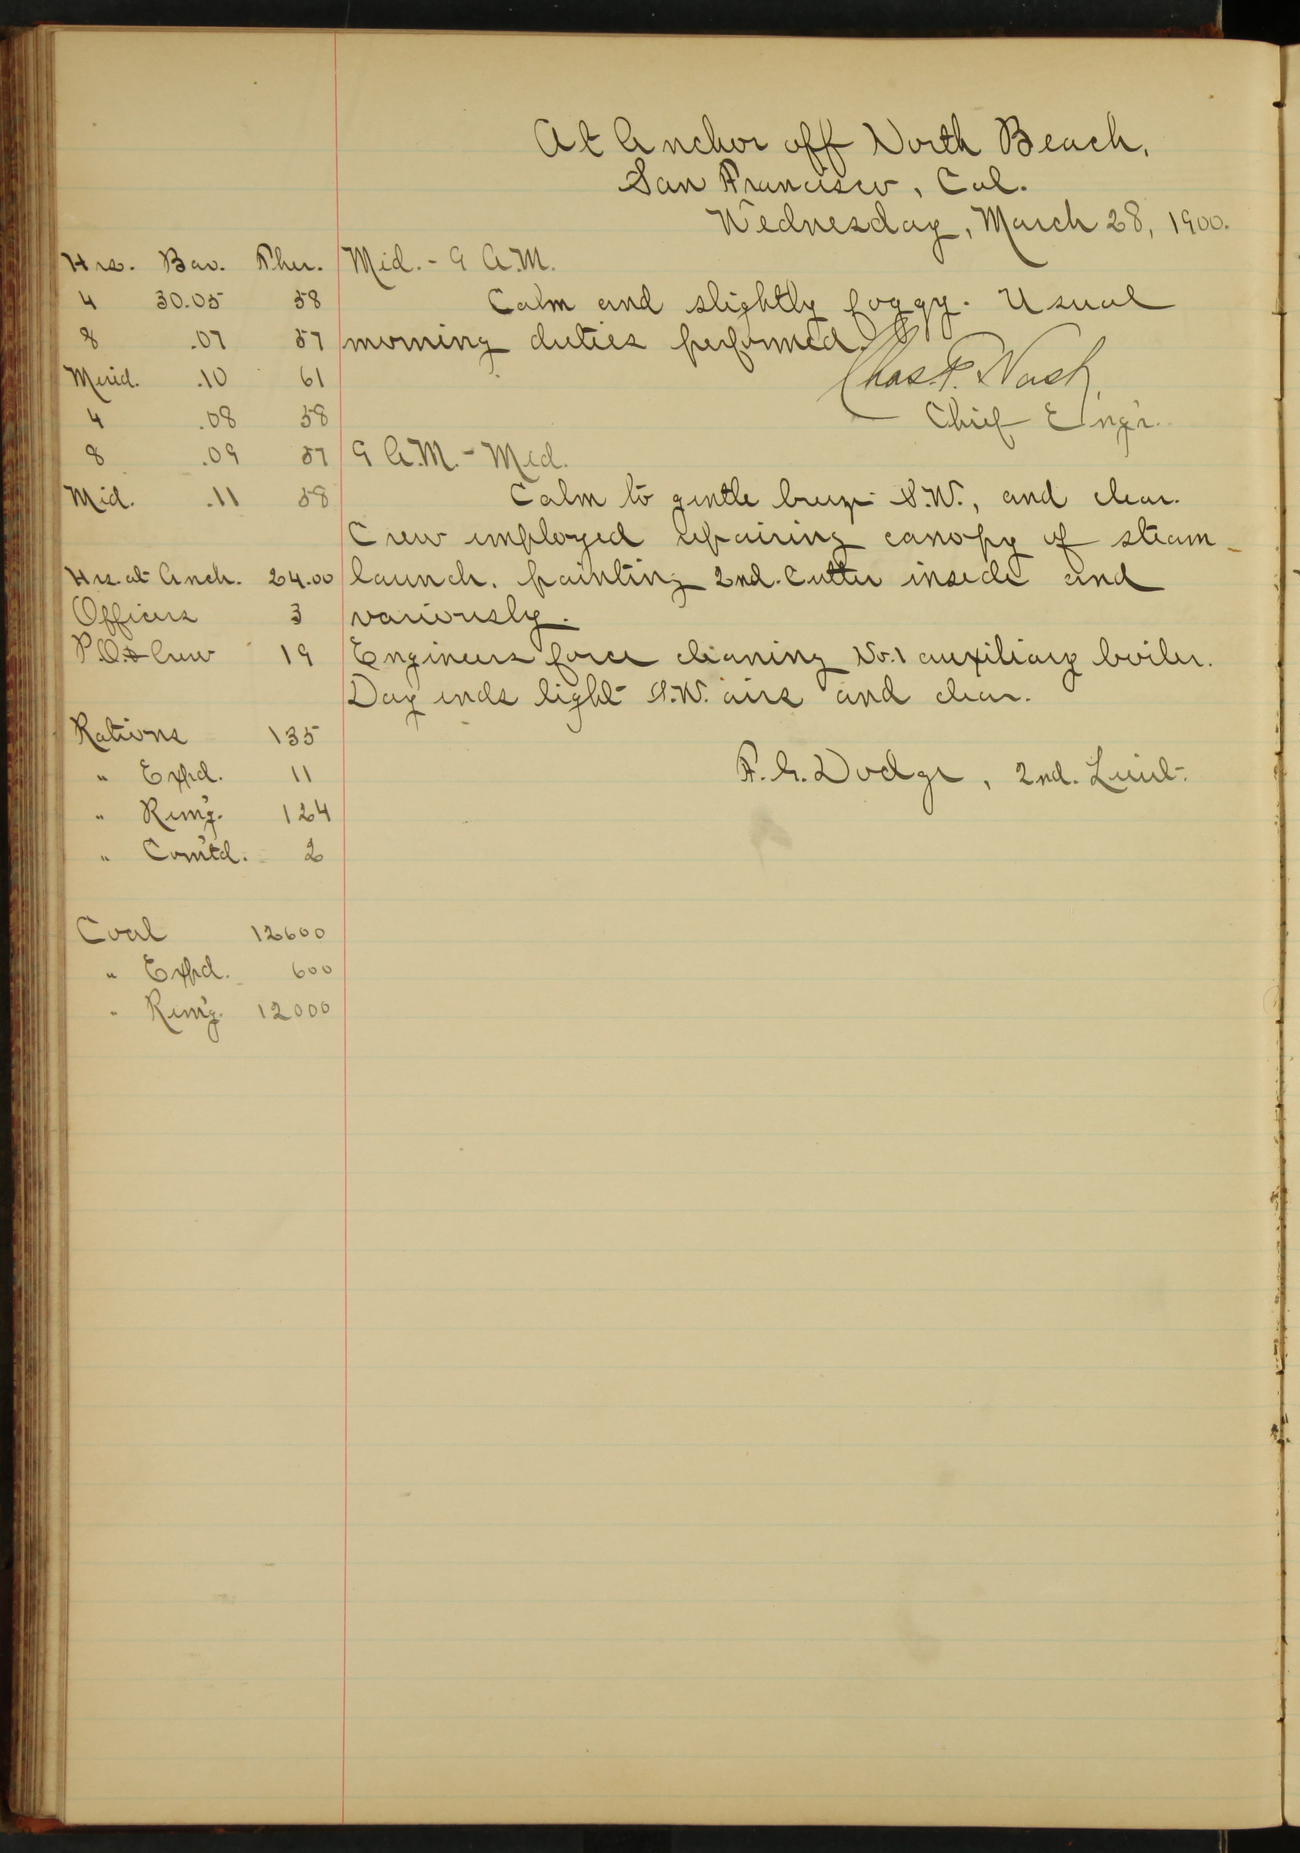 At Anchor off North Beach,
San Francisco, Cal.
Wednesday, March 28, 1900.
Hrs. Bar. Ther.
4 30.05 58
8 .07 57
Merid. .10 61
4 .08 58
8 .09 57
Mid. .11 58
Hrs. at Anch. 24.00
Officers 3
P.O. & Crew 19
Rations 135
" Expd. 11
" Rem'g. 124
" Com'td. 2
Coal 12600
" Expd. 600
" Rem'g. 12000
Mid. - 9 A.M.
Calm and slightly foggy. Usual
morning duties performed.
Chas. F. Nash,
Chief Eng'r.
9 A.M. - Mid.
Calm to gentle breeze S.W., and clear.
Crew employed repairing canopy of steam
launch, painting 2nd. Cutter inside and
variously.
Engineers force cleaning No. 1 auxiliary boiler.
Day ends light S.W. airs and clear.
F. G. Dodge, 2nd. Lieut.